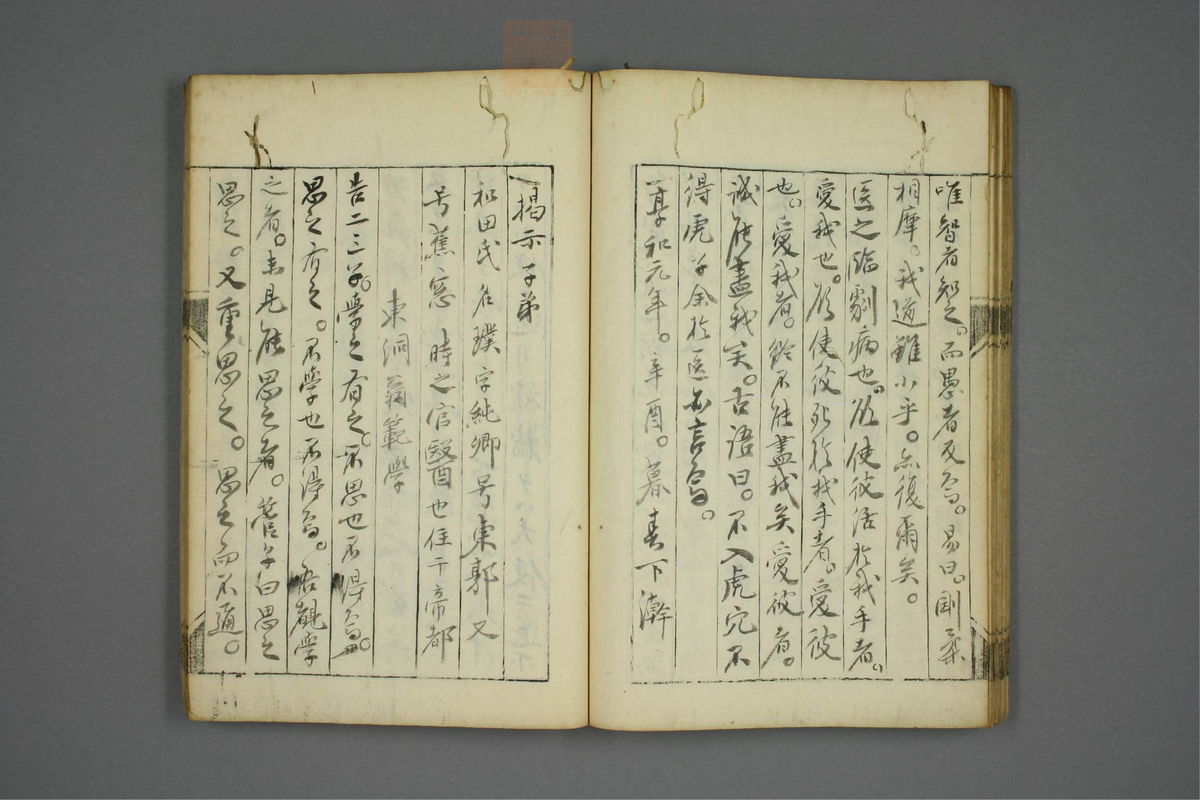 唯智者知之。而愚者反焉。易曰。剛柔
相摩。我道雖小乎。亦復爾矣。
医之臨劇病也。欲使彼活於我手者。
愛我也。欲使彼死於我手者。愛彼
也。愛我者。終不能盡我矣愛彼者。
誠能盡我矣。古语曰。不入虎穴不
得虎子余於医亦言焉。
享和元年。辛酉。暮春下澣
揭示子弟
和田氏名璞字純卿号東郭又
号蕉窓 時之官毉也住于帝都
東洞翁範學
告二三子。學之有之。不思也不得焉。
思之有之。不學也不得焉。吾觀學
之者。未見能思之者。管子曰思之
思之。又重思之。思之而不通。